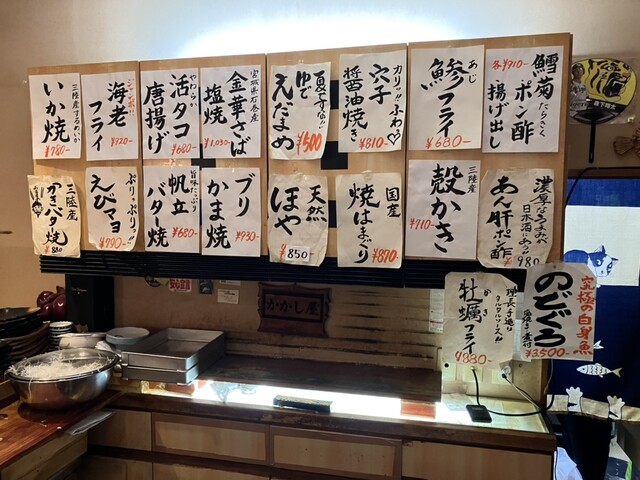 三陸産するめいか
いか焼
¥780-
ジャンボ!!
海老フライ
¥920-
やわらか
活タコ唐揚げ
¥680-
宮城県石巻産
金華さば塩焼
¥1,030-
夏ですな!!
ゆでえだまめ
¥500
カリッ!!ふわっ♡
穴子醤油焼き
¥810-
あじ
鯵フライ
¥680-
各¥910-
鱈菊 たらきく
ポン酢
揚げ出し
三陸産
かきバタ焼
880
ぷりっぷりっ!!
えびマヨ
¥990-
旨味たっぷり
帆立バター焼
¥680-
ブリかま焼
¥930-
天然
ほや
¥850-
国産
焼はまぐり
¥870-
三陸産
殻かき
¥710-
濃厚なうまみ
日本酒にあう
あん肝ポン酢
980
かき
牡蠣フライ
タルタルソース
¥880-
究極の白身魚
のどぐろ
¥3,500-
かかし屋